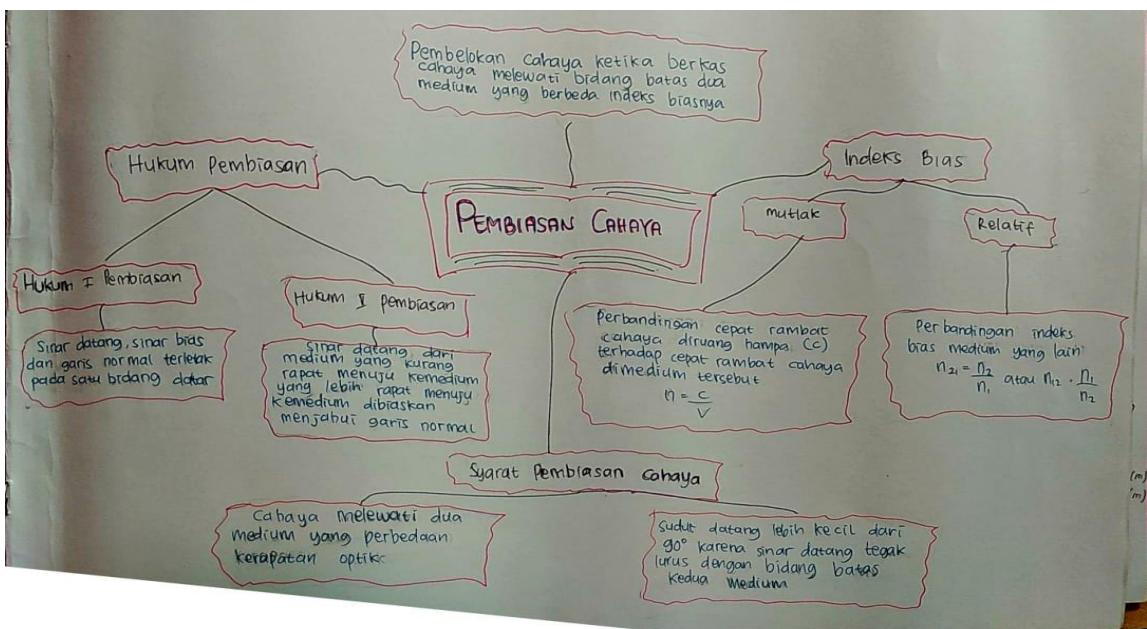 Pembelokan cahaya ketika berkas
cahaya melewati bidang batas dua
medium yang berbeda indeks biasnya
PEMBIASAN CAHAYA
Hukum Pembiasan
Hukum I Pembiasan
Sinar datang, sinar bias
dan garis normal terletak
pada satu bidang datar
Hukum II pembiasan
Sinar datang dari
medium yang kurang
rapat menuju kemedium
yang lebih rapat menuju
kemedium dibiaskan
menjabui garis normal
Indeks Bias
mutlak
Perbandingan cepat rambat
cahaya diruang hampa (c)
terhadap cepat rambat cahaya
dimedium tersebut
n = c/v
Relatif
Perbandingan indeks
bias medium yang lain
n₂₁ = n₂/n₁ atau n₁₂ · n₁/n₂
Syarat Pembiasan cahaya
Cahaya melewati dua
medium yang perbedaan
kerapatan optik
Sudut datang lebih kecil dari
90° karena sinar datang tegak
lurus dengan bidang batas
kedua medium
(m)
(m)